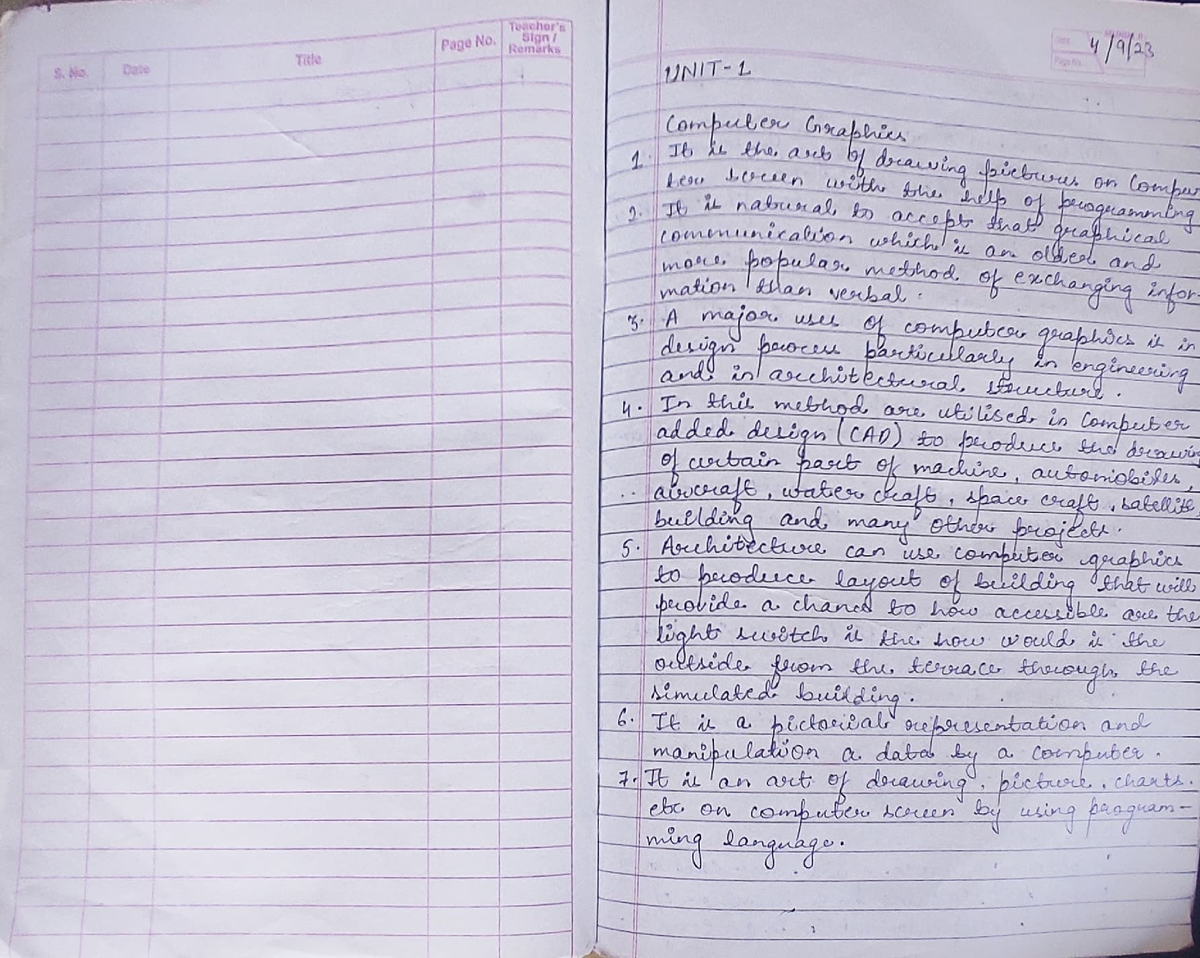 S. No.
Date
Title
Page No.
Teacher's
Sign /
Remarks
Date 4/9/23
Page No.
UNIT-1
Computer Graphics
1. It is the art of drawing pictures on Compu
ter screen with the help of programming
2. It is natural to accept that graphical
communication which is an older and
more popular method of exchanging infor-
mation than verbal.
3. A major uses of computer graphics is in
design process particularly in engineering
and in architectural structure.
4. In this method are utilised in Computer
added design (CAD) to produce the drawin
of certain part of machine, automobiles,
aircraft, water craft, space craft, satellite,
building and many other project.
5. Architecture can use computer graphics
to produce layout of building that will
provide a chance to how accessible are the
light switch is the how would is the
outside from the terrace through the
simulated building.
6. It is a pictorial representation and
manipulation a data by a computer.
7. It is an art of drawing, picture, charts.
etc on computer screen by using program-
ming language.